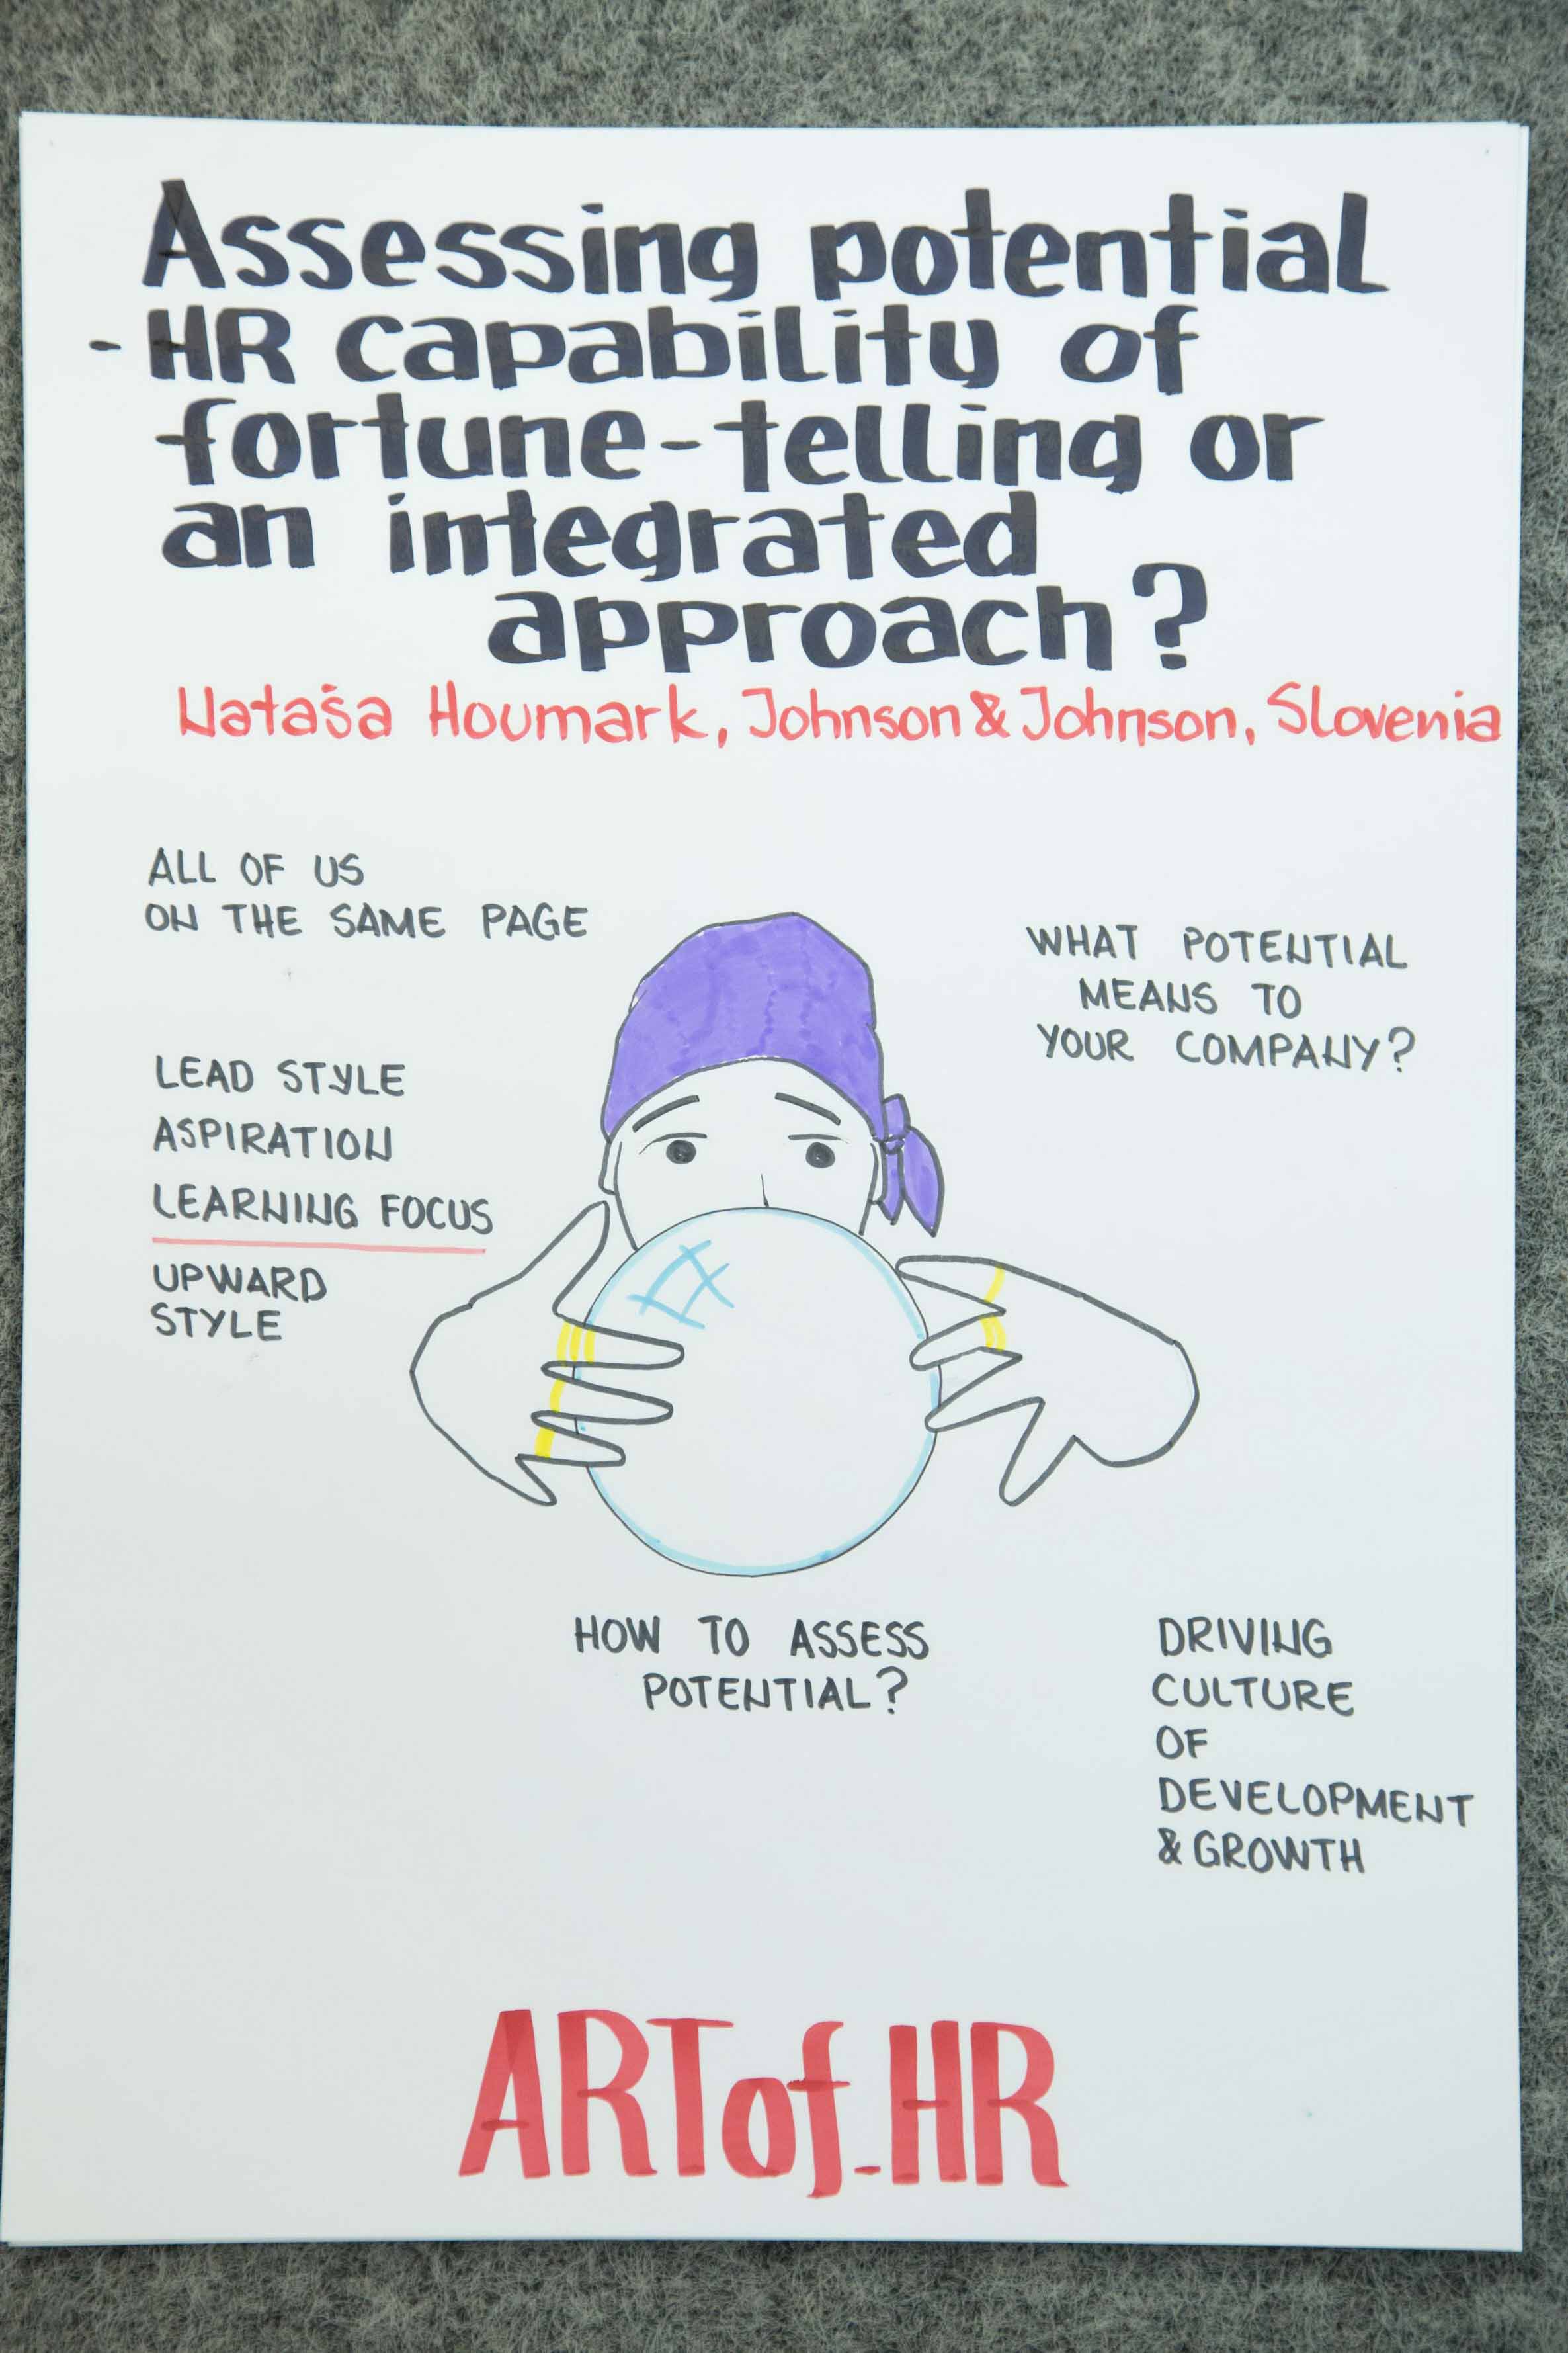 Assessing potential
- HR capability of
fortune-telling or
an integrated
approach?
Nataša Houmark, Johnson & Johnson, Slovenia
ALL OF US
ON THE SAME PAGE
WHAT POTENTIAL
MEANS TO
YOUR COMPANY?
LEAD STYLE
ASPIRATION
LEARNING FOCUS
UPWARD
STYLE
HOW TO ASSESS
POTENTIAL?
DRIVING
CULTURE
OF
DEVELOPMENT
& GROWTH
ARTof_HR